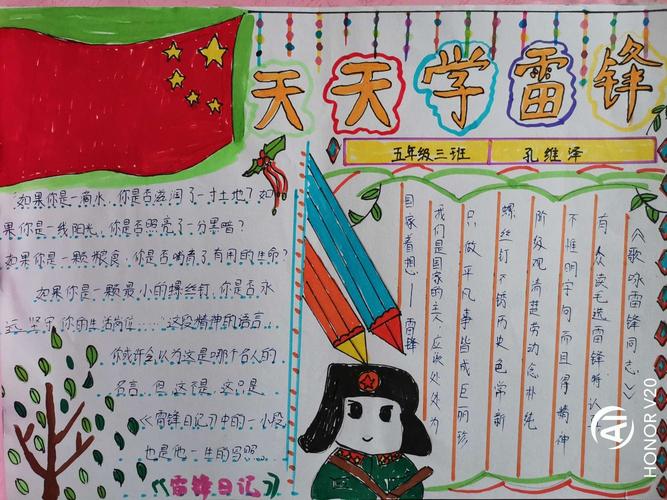 天天学雷锋
五年级三班 孔维泽
如果你是一滴水,你是否滋润了一寸土地?如
果你是一线阳光,你是否照亮了一分黑暗?
如果你是一颗粮食,你是否哺育了有用的生命?
如果你是一颗最小的螺丝钉,你是否永
远坚守你的生活岗位……这段精神的语言
你或许会认为这是哪个名人的
名言,但,这不是,这只是
《雷锋日记》中的一小段
也是他一生的写照
《雷锋日记》
《歌咏雷锋同志》
有众读毛选雷锋特认
不惟明字句而且得精神
阶级观清楚劳动念朴纯
螺丝钉不锈历史色常新
只做平凡事皆成巨明珍
我们是国家的主人应该处处为
国家着想——雷锋
AI
HONOR V20